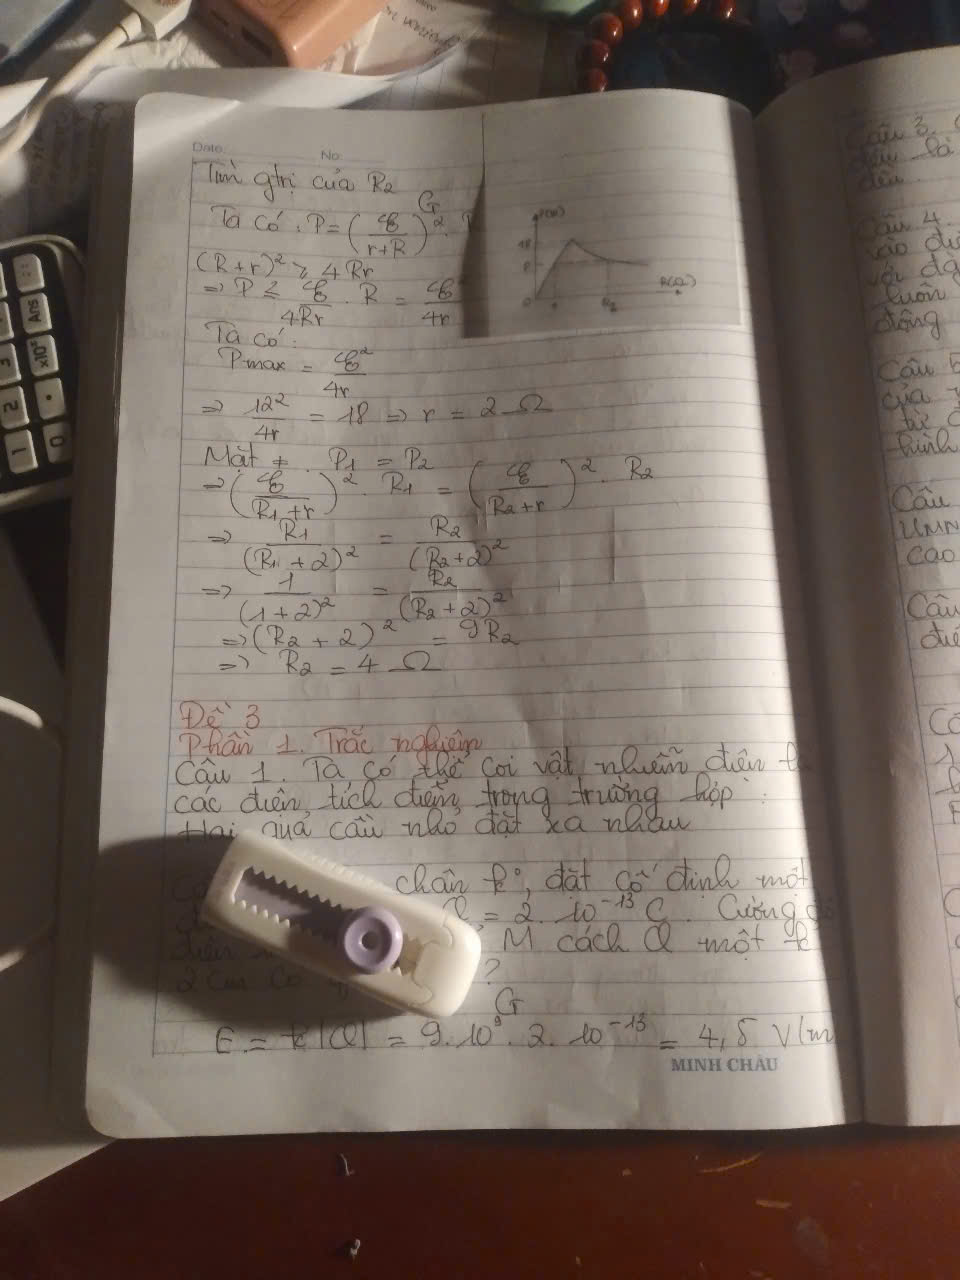 Date: No:
Tìm gtrị của R₂
G
Ta có: P = (ℰ/(r+R))².
(R+r)² ≥ 4Rr
=> P ≤ ℰ/4Rr . R = ℰ/4r
Ta có:
Pmax = ℰ²/4r
=> 12²/4r = 18 => r = 2 Ω
Mặt ≠ P₁ = P₂
=> (ℰ/(R₁+r))² . R₁ = (ℰ/(R₂+r))² . R₂
=> R₁/(R₁+2)² = R₂/(R₂+2)²
=> 1/(1+2)² = R₂/(R₂+2)²
=> (R₂+2)² = 9R₂
=> R₂ = 4 Ω
P(W)
18
P
0
R₂
R(Ω)
Đề 3
Phần 1. Trắc nghiệm
Câu 1. Ta có thể coi vật nhiễm điện
các điện tích điểm trong trường hợp:
Hai quả cầu nhỏ đặt xa nhau
chân k°, đặt cố định một
Q = 2.10⁻¹³ C. Cường độ
điện M cách Q một k
2 cm có ?
G
E = k|Q| = 9.10⁹.2.10⁻¹³ = 4,5 V/m
MINH CHÂU
Câu 3.
đều là
đều.
Câu 4.
vào
với
luôn
động
Câu 5
của
từ
hình
Câu
UMN
cao
Câu
điể
Ans
x10ˣ
3
2
•
1
0